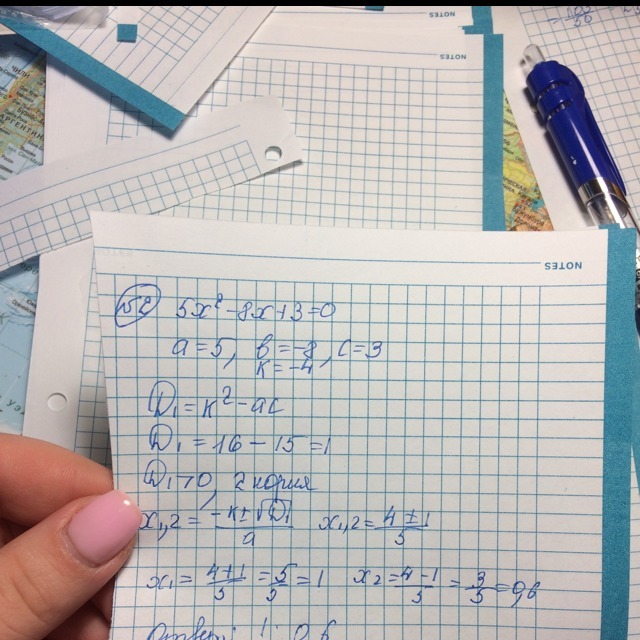 NOTES
NOTES
NOTES
5x² - 8x + 3 = 0
a = 5, b = -8, c = 3
k = -4
D₁ = k² - ac
D₁ = 16 - 15 = 1
D₁ > 0, 2 корня
x₁,₂ = (-k ± √D₁)/a x₁,₂ = (4 ± 1)/5
x₁ = (4+1)/5 = 5/5 = 1 x₂ = (4-1)/5 = 3/5 = 0,6
Ответ: 1; 0,6